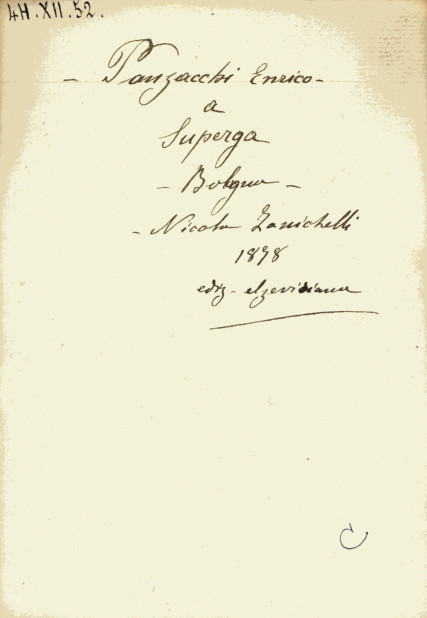 4H.XII.52.
- Panzacchi Enrico -
a
Superga
- Bologna -
- Nicola Zanichelli
1878
ediz - elzeviriana
C